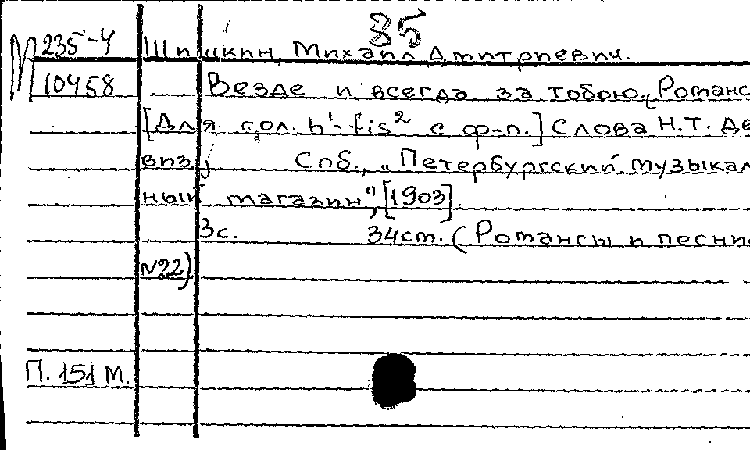 85
М 235-4 Шишкин, Михаил Дмитриевич.
10458 Везде и всегда за тобою. (Романс
[Для гол. h'-fis² с ф-п.] Слова Н.Т. Де
впз.) Спб., „Петербургский музыкал
ный магазин", [1903].
3с. 34см. (Романсы и песни
№22)
П. 151 М.